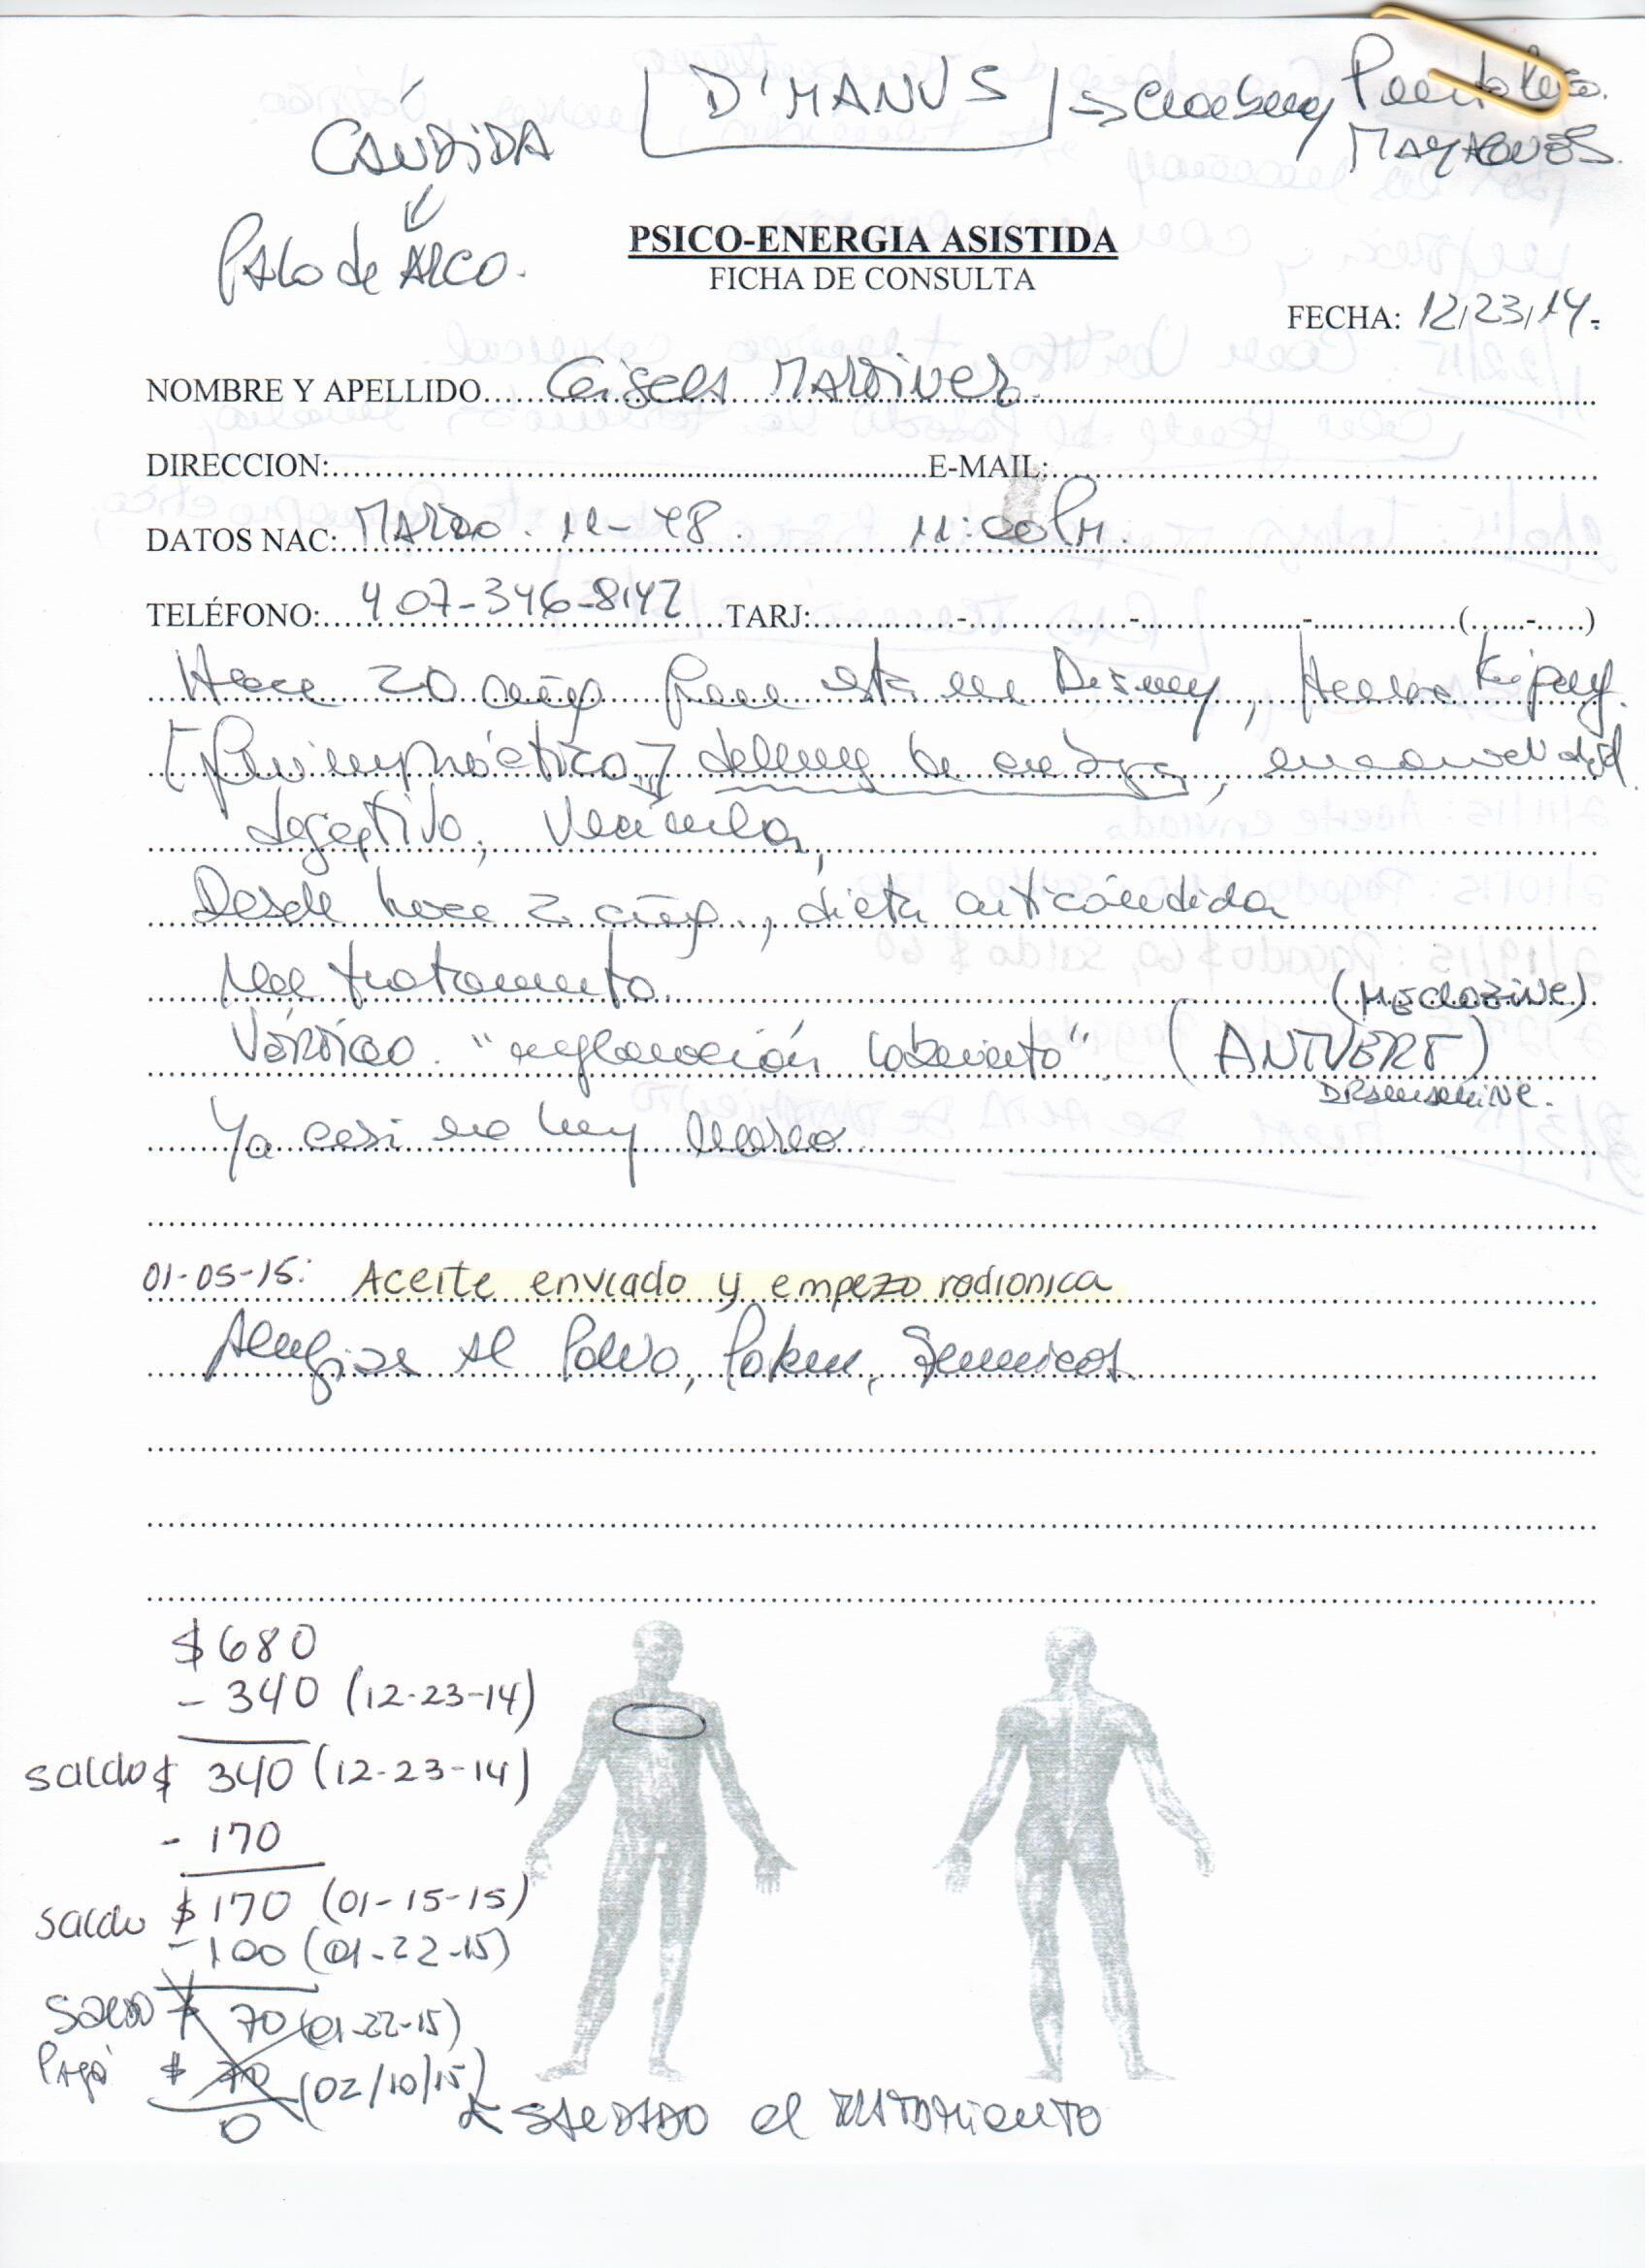 D'MANUS
CANDIDA
MAYAGUES.
Palo de ARCO.
PSICO-ENERGIA ASISTIDA
FICHA DE CONSULTA
FECHA: 12/23/14.
NOMBRE Y APELLIDO Martinez
DIRECCION: E-MAIL:
DATOS NAC: MARZO. 11-48 11:00 PM.
TELÉFONO: 407-346-8142 TARJ: - - - ( - )
Hace 20 años que esta en Disney,
[Quiropráctico]
digestivo,
Desde hace 2 años, dieta anticándida
tratamiento
(Meclozine)
Vértigo. "inflamación laberinto". (ANTVERT)
DRAMAMINE.
Ya casi no hay mareo
01-05-15: Aceite enviado y empezo radionica
Alergias al Polvo, Polen, Quimicos
$680
- 340 (12-23-14)
saldo $ 340 (12-23-14)
- 170
saldo $ 170 (01-15-15)
- 100 (01-22-15)
Saldo 70 (01-22-15)
Pagó $ 70 (02/10/15)
0 SALDADO el TRATAMIENTO